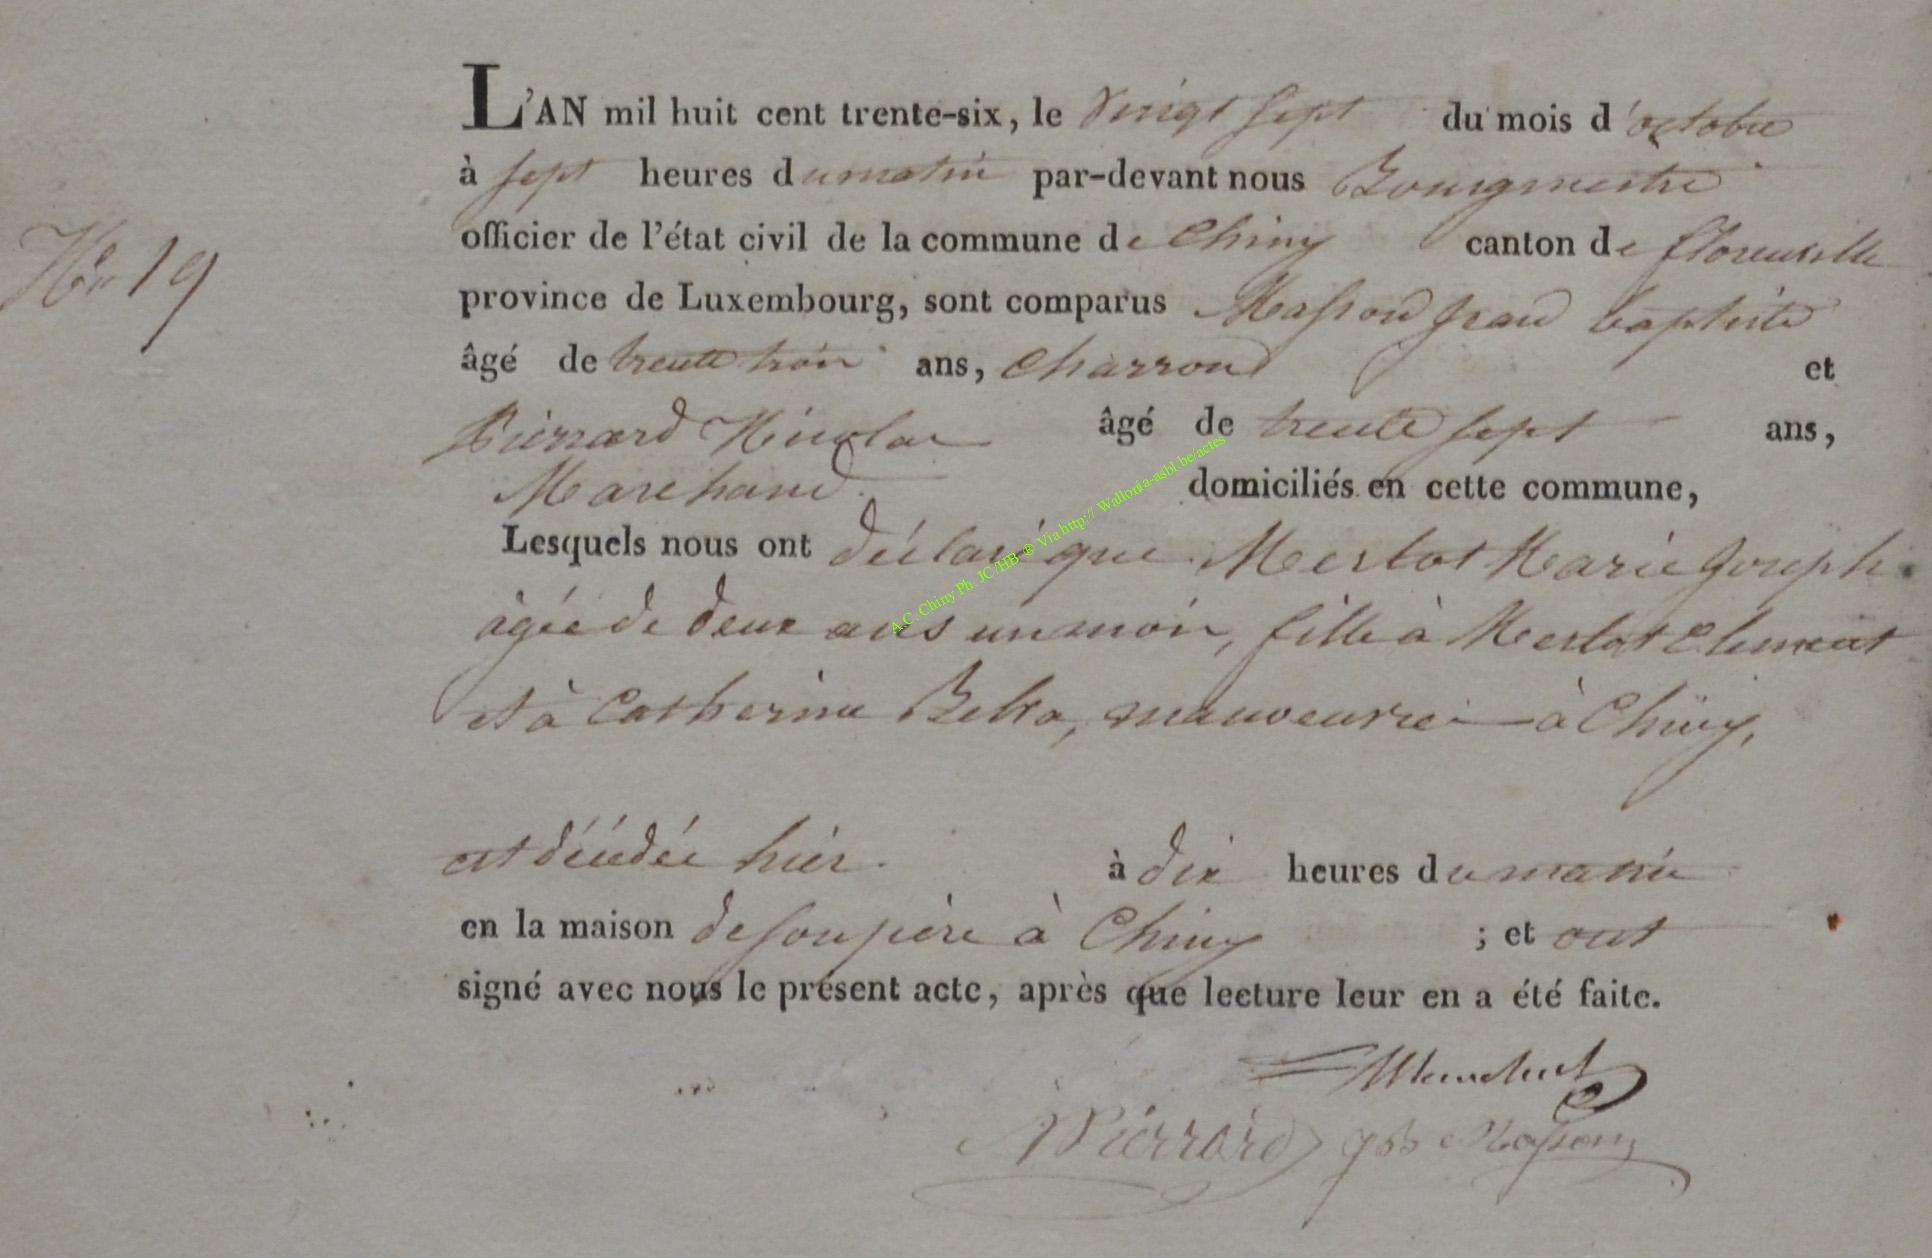 L'AN mil huit cent trente-six, le vingt sept du mois d'octobre
à sept heures du matin par-devant nous Bourgmestre
officier de l'état civil de la commune de Chiny canton de florenville
N° 19
province de Luxembourg, sont comparus Masson Jean baptiste
âgé de trente trois ans, charron et
Pierrard Nicolas âgé de trente sept ans,
Marchand domiciliés en cette commune,
Lesquels nous ont déclaré que Merlot Marie Joseph
âgée de deux ans un mois, fille à Merlot Clement
et à Catherine à Chiny,
est décédée hier à dix heures du matin
en la maison de son père à Chiny ; et ont
signé avec nous le présent acte, après que lecture leur en a été faite.
N Pierrard Masson
A.C. Chiny Ph. JC HB ® Via http:// Wallonia-asbl.be/actes